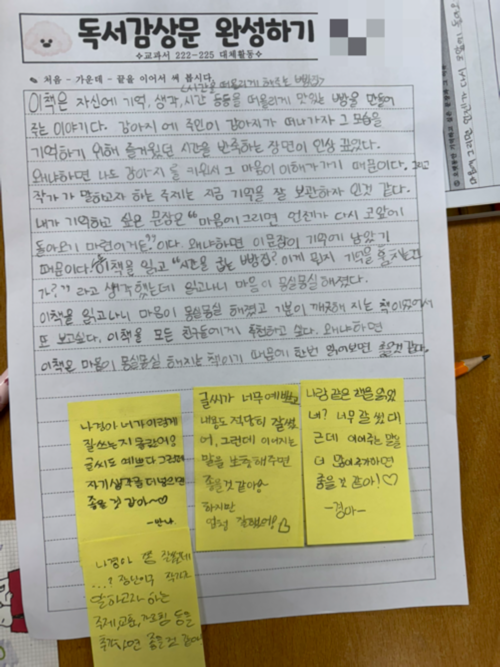 독서감상문 완성하기
✧교과서 222-225 대체활동✧
처음 - 가운데 - 끝을 이어서 써 봅시다
(시간을 떠올리게 해주는 빵집?
이책은 자신에 기억, 생각, 시간 등등을 떠올리게 맛있는 빵을 만들어
주는 이야기다. 강아지에 주인이 강아지가 떠나가자 그 모습을
기억하기 위해 즐거웠던 시간을 반죽하는 장면이 인상 깊었다.
왜냐하면 나도 강아지를 키워서 그 마음이 이해가 가기 때문이다. 그리고
작가가 말하고자 하는 주제는 지금 기억을 잘 보관하자 인것 같다.
내가 기억하고 싶은 문장은 "마음에 그리면 언젠가 다시 코앞에
돌아오기 마련이거든" 이다. 왜냐하면 이문장이 기억에 남았기
때문이다. 이책을 읽고 "시간을 굽는 빵집? 이게 뭐지 기억을 굽는건
가?" 라고 생각했는데 읽고나니 마음이 몽실몽실 해졌다.
이책을 읽고나니 마음이 몽실몽실 해졌고 기분이 깨끗해 지는 책이어서
또 보고싶다. 이책을 모든 친구들에게 추천하고 싶다. 왜냐하면
이책은 마음이 몽실몽실 해지는 책이기 때문에 한번 읽어보면 좋을것 같다.
나경아 너가 이렇게
잘쓰는지 몰랐어!
글씨도 예쁘다 그런데
자기생각을 더 넣으면
좋을 것 같아~♡
글씨가 너무 예쁘고
내용도 적당히 잘썼
어, 그런데 이어지는
말을 보충해주면
좋을것 같아
하지만
엄청 잘했어!
나랑 같은 책을 읽었
네? 너무 잘 썼다!
근데 이어주는 말을
더 많이 추가하면
좋을 것 같아!♡
나경아
말하고자 하는
주제, 교훈, 등을